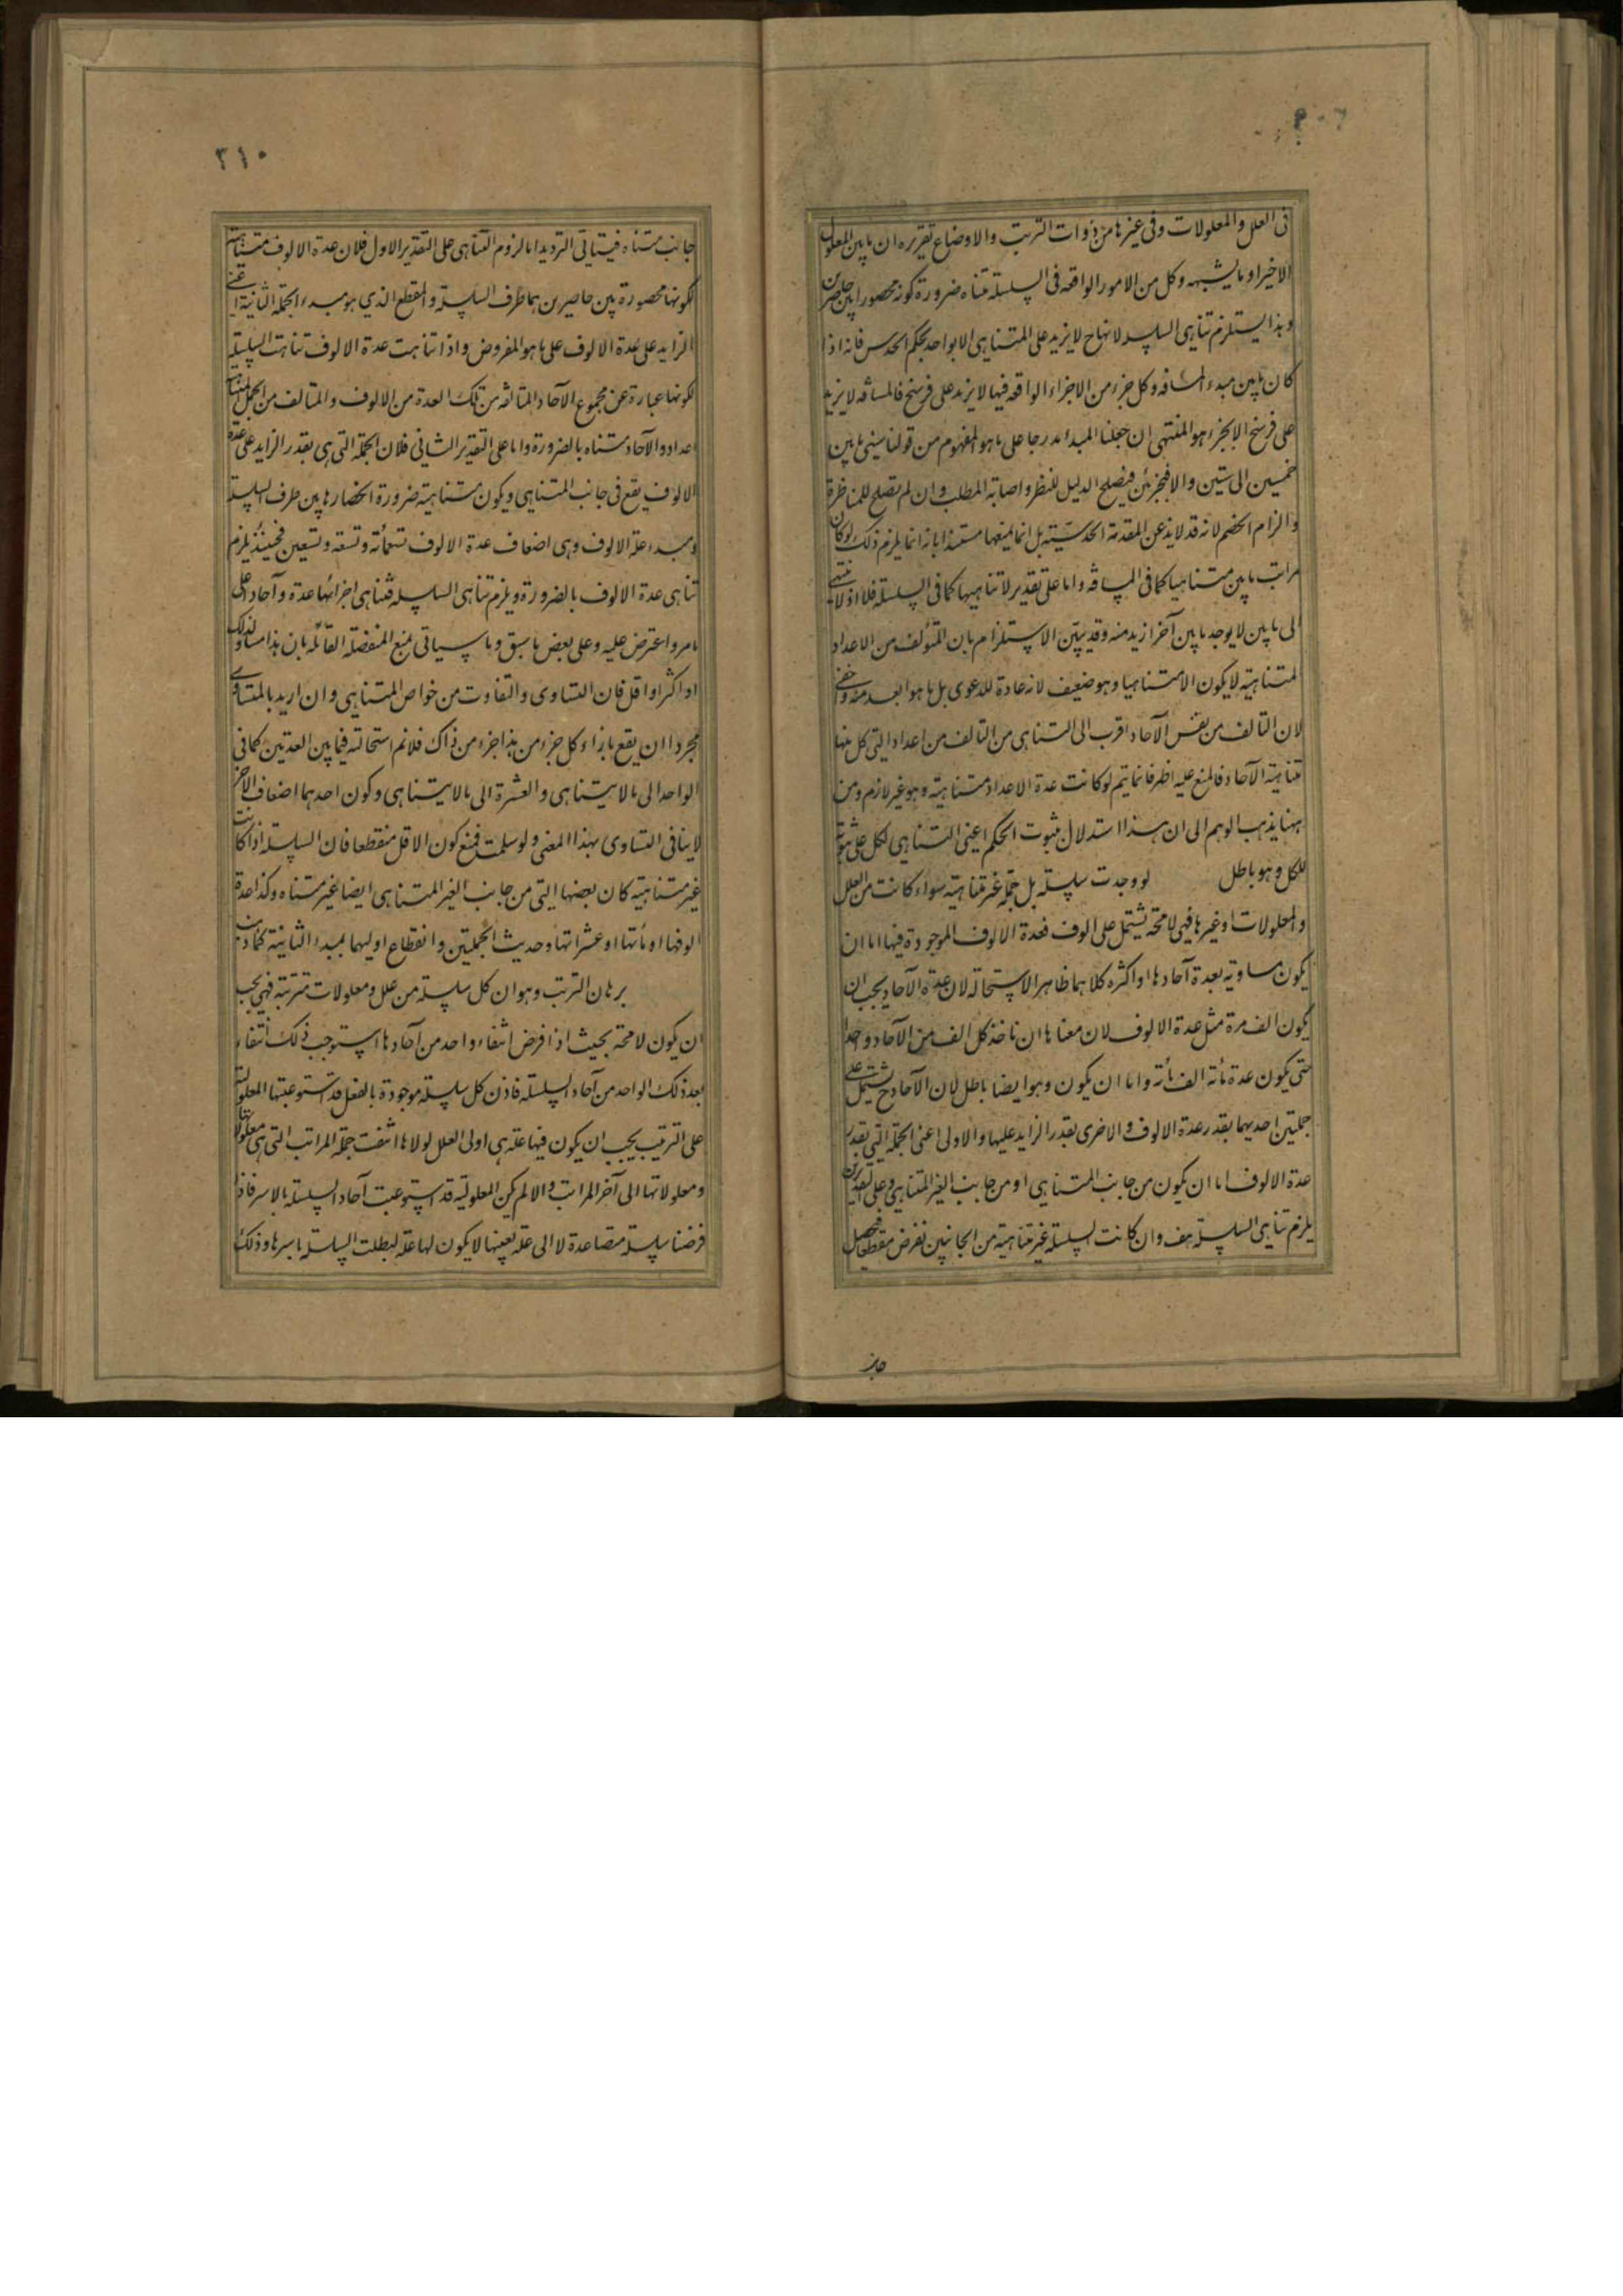 فى العلل والمعلولات وفى غيرها من ذوات الترتب والاوضاع تقريره ان ما بين المعلول
الاخير او ما يشبهه وكل من الامور الواقعة فى السلسلة متناه ضرورة كونه محصورا بين حاصرين
وهذا يستلزم تناهى السلسلة لانها ح لا يزيد على المتناهى الا بواحد بحكم الحدس فانه اذا
كان ما بين مبدء المسافة وكل جزء من الاجزاء الواقعة فيها لا يزيد على فرسخ فالمسافة لا يزيد
على فرسخ الا بجزء هو المنتهى ان جعلنا المبدء مدرجا على ما هو المفهوم من قولنا سنى ما بين
خمسين الى ستين والا فبجزئين فيصلح الدليل للنظر واصابة المطلب وان لم يصلح للمناظرة
والزام الخصم لانه قد لا يذعن المقدمة الحدسية بل انما يمنعها مستندا بانه انما يلزم ذلك لو كان
مراتب ما بين متناهيا كما فى المسافة واما على تقدير لا تناهيها كما فى السلسلة فلا اذ لا ينتهى
الى ما بين لا يوجد ما بين آخر ازيد منه وقد يبين الاستلزام بان المتولف من الاعداد
المتناهية لا يكون الا متناهيا وهو ضعيف لانه عادة للدعوى بل ما هو ابعد منه واخفى
لان التالف من نفس الآحاد اقرب الى التناهى من التالف من اعداد التى كل منها
متناهية الآحاد فالمنع عليه اظهر فانما يتم لو كانت عدة الاعداد متناهية وهو غير لازم ومن
ههنا يذهب الوهم الى ان هذا استدلال بثبوت الحكم اعنى التناهى لكل على ثبوته
للكل وهو باطل لو وجدت سلسلة بل جملة غير متناهية سواء كانت من العلل
والمعلولات او غيرها فهى لا محة يشتمل على الوف فعدة الالوف الموجودة فيها اما ان
يكون مساوية بعدة آحادها او اكثره كلاهما ظاهر الاستحالة لان عدة الآحاد يجب ان
يكون الف مرة مثل عدة الالوف لان معناها ان ناخذ كل الف من الآحاد واحدا
حتى يكون عدة مائة الف مائة واما ان يكون وهو ايضا باطل لان الآحاد ح يشتمل على
جملتين احديهما بقدر عدة الالوف والاخرى بقدر الزايد عليها والاولى اعنى الجملة التى بقدر
عدة الالوف اما ان يكون من جانب المتناهى او من جانب الغير المتناهى وعلى التقديرين
يلزم تناهى السلسلة هف وان كانت السلسلة غير متناهية من الجانبين نفرض مقطعا فيحصل
جانب
٣١٠
جانب متناه فيتاتى الترديد اما لزوم التناهى على التقدير الاول فلان عدة الالوف متناهية
لكونها محصورة بين حاصرين هما طرف السلسلة والمقطع الذي هو مبدء الجملة الثانية اعنى
الزايد على عدة الالوف على ما هو المفروض واذا تناهت عدة الالوف تناهت السلسلة
لكونها عبارة عن مجموع الآحاد المتالفة من تلك العدة من الالوف والمتالف من الجمل المتناهية
اعداد والآحاد متناه بالضرورة واما على التقدير الثانى فلان الجملة التى هى بقدر الزايد على عدة
الالوف يقع فى جانب المتناهى ويكون متناهية ضرورة انحصارها بين طرف السلسلة
ومبدء علة الالوف وهى اضعاف عدة الالوف تسعمائة وتسعة وتسعين فحينئذ يلزم
تناهى عدة الالوف بالضرورة ويلزم تناهى السلسلة فتناهى اجزائها عدة وآحاد على
ما مر واعترض عليه وعلى بعض ما سبق وما سياتى بمنع المنفصلة القائله بان هذا مساو لذلك
او اكثر او اقل فان التساوى والتفاوت من خواص المتناهى وان اريد بالمتساوى
مجرد ان يقع بازاء كل جزء من هذا جزء من ذاك فلا نم استحالته فيما بين العدتين كما فى
الواحد الى ما لا يتناهى والعشرة الى ما لا يتناهى وكون احدهما اضعاف الاخر
لا ينافى التساوى بهذا المعنى ولو سلمت فمنع كون الاقل منقطعا فان السلسلة اذا كانت
غير متناهية كان بعضها التى من جانب الغير المتناهى ايضا غير متناه وكذا عدة
الوفها او مأتها او عشراتها وحديث الجملتين وانقطاع اوليهما بمبدء الثانية كاذب
برهان الترتب وهو ان كل سلسلة من علل ومعلولات مترتبة فهى يجب
ان يكون لا محة بحيث اذا فرض انتفاء واحد من آحادها استوجب ذلك انتفاء
بعد ذلك الواحد من آحاد السلسلة فاذن كل سلسلة موجودة بالفعل قد استوعبتها المعلولية
على الترتيب يجب ان يكون فيها علة هى اولى العلل لولاها انتفت جملة المراتب التى هى معلولاتها
ومعلولاتها الى آخر المراتب والا لم يكن المعلولية قد استوعبت آحاد السلسلة بالاسر فاذا
فرضنا سلسلة متصاعدة لا الى علة بعينها لا يكون لها علة لبطلت السلسلة باسرها وذلك